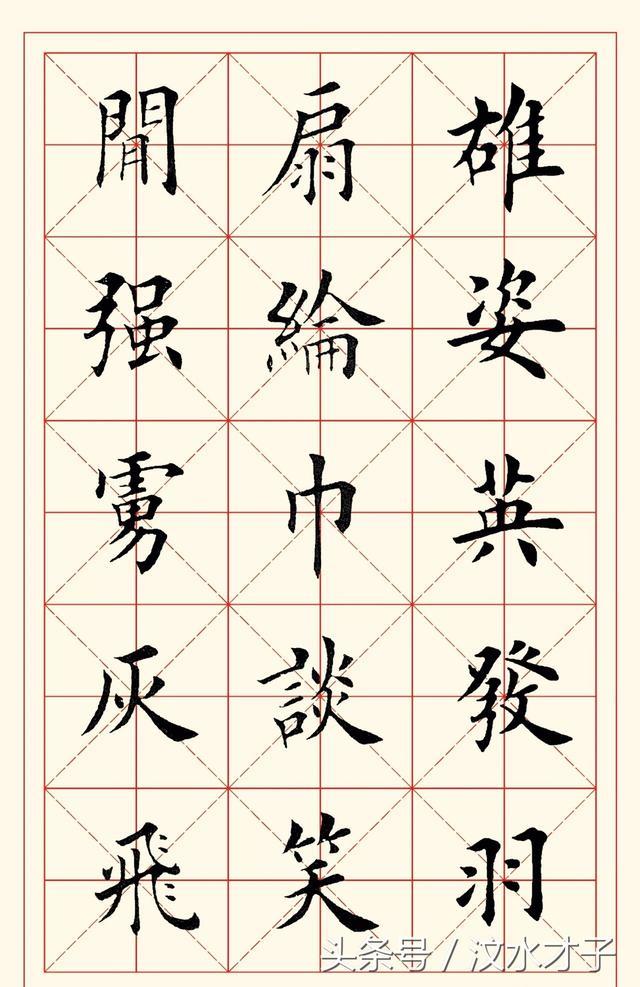 雄姿英發羽
扇綸巾談笑
閒强虜灰飛
头条号 / 汶水才子